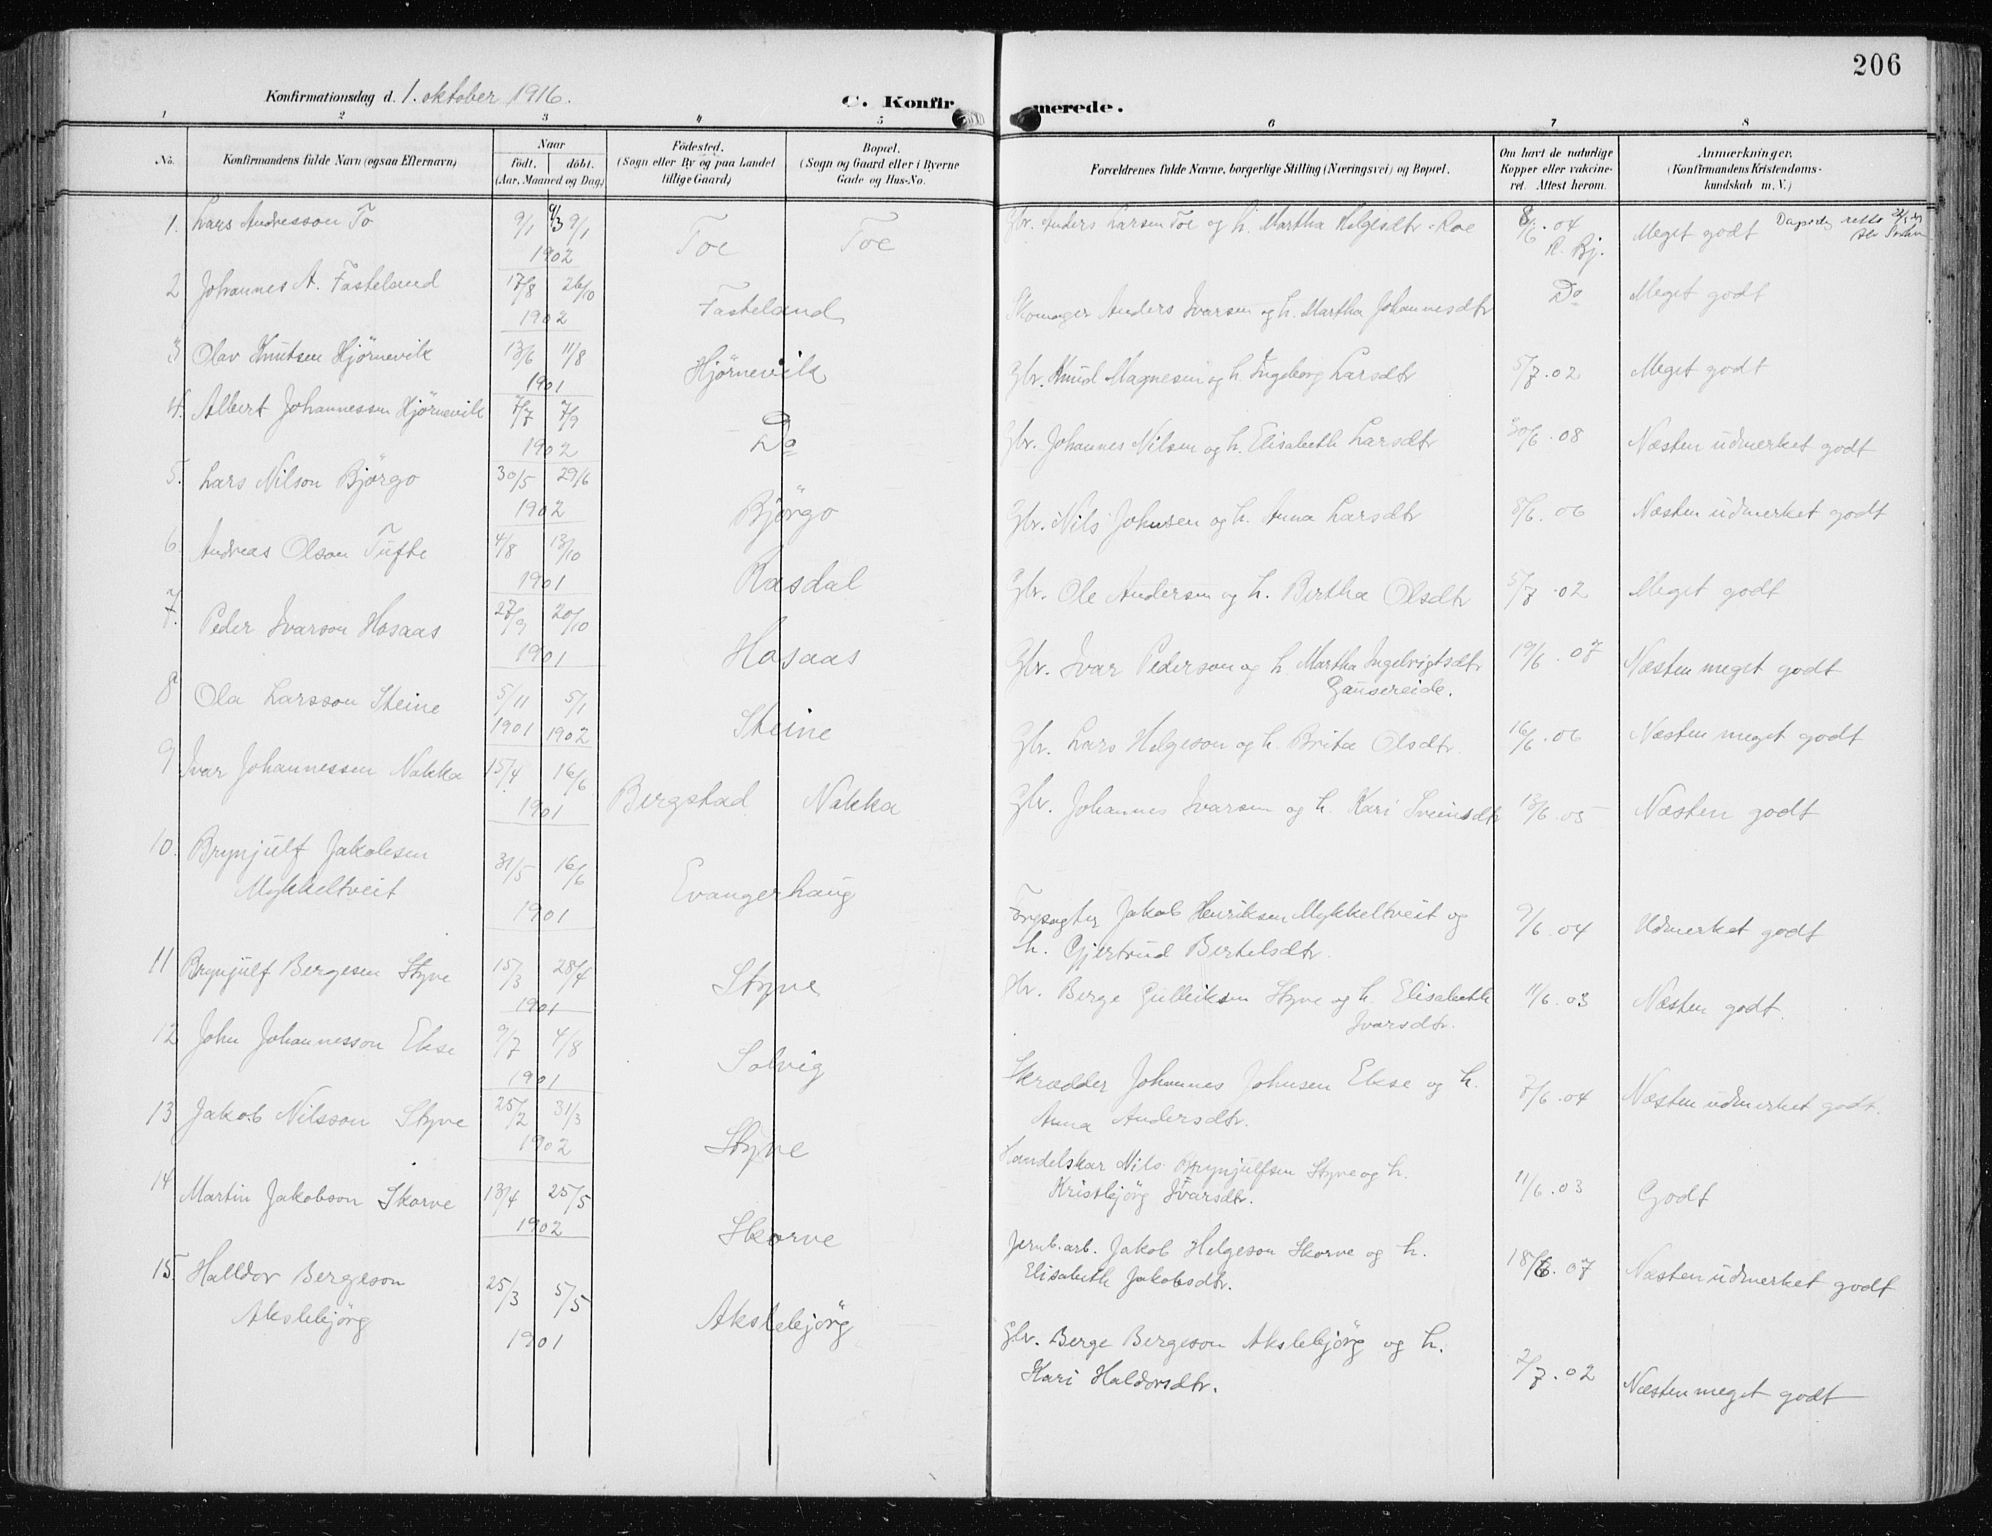 206
Konfirmationsdag d. 1. oktober 1916.
C. Konfirmerede.
1 2 3 4 5 6 7 8
No. Konfirmandens fulde Navn (ogsaa Efternavn) Naar født. døbt. (Aar, Maaned og Dag) Fødested. (Sogn eller By og paa Landet tillige Gaard) Bopæl. (Sogn og Gaard eller i Byerne Gade og Hus-No. Forældrenes fulde Navne, borgerlige Stilling (Næringsvei) og Bopæl. Om havt de naturlige Kopper eller vakcineret. Attest herom. Anmærkninger. (Konfirmandens Kristendomskundskab m. V.)
1. Lars Andresson To 9/1 9/3 9/1 1902 Toe Toe Gbr. Anders Larsen Toe og h. Martha Helgesdtr. 8/6 .04 R. Bj. Meget godt
2 Johannes A. Fasteland 17/8 26/10 1902 Fasteland Skomager Anders Ivarsen og h. Martha Johannesdtr Do Meget godt
3 Olav Knutsen Hjørnevik 13/6 11/8 1901 Hjørnevik Gbr. Knud Magnesen og h. Ingeborg Larsdtr 5/7 .02 Meget godt
4. Albert Johannessen Hjørnevik 7/7 7/9 1902 Do Gbr. Johannes Nilsen og h. Elisabeth Larsdtr 30/6 .08 Næsten udmerket godt
5. Lars Nilson Bjørgo 30/5 29/6 1902 Bjørgo Gbr. Nils Johnsen og h. Anna Larsdtr 8/6 .06 Næsten udmerket godt
6. Andreas Olson Tufte 4/8 13/10 1901 Rasdal Gbr. Ole Andersen og h. Bertha Olsdtr 5/7 .02 Meget godt
7. Peder Ivarson Hosaas 27/9 20/10 1901 Hosaas Gbr. Ivar Pederson og h. Martha Ingebrigtsdtr
Gausereide. 19/6 .07 Næsten meget godt
8 Ola Larsson Steine 5/11 1901 5/1 1902 Steine Gbr. Lars Helgeson og h. Brita Olsdtr. 16/6 .06 Næsten meget godt
9 Ivar Johannessen Nakka 15/4 16/6 1901 Bergstad Nakka Gbr. Johannes Ivarsen og h. Kari Sveinsdtr 13/6 .05 Næsten godt
10. Brynjulf Jakobsen
Mykkeltveit 31/5 16/6 1901 Evangerhaug Jakob Henriksen Mykkeltveit og
h. Gjertrud Bertelsdtr. 9/6 .04 Udmerket godt
11 Brynjulf Bergesen Styve 15/3 28/4 1901 Styve Gbr. Berge Gulleiksen Styve og h. Elisabeth
Ivarsdtr. 11/6 .03 Næsten godt.
12 John Johannesson Ekse 9/7 4/8 1901 Solvig Skrædder Johannes Johnsen Ekse og h.
Anna Andersdtr. 7/6 .04 Næsten udmerket godt.
13 Jakob Nilsson Styve 25/2 31/3 1902 Styve Handelskar Nils Brynjulfsen Styve og h.
Kristbjörg Ivarsdtr. 11/6 .03 Godt
14 Martin Jakobson Skorve 13/4 25/5 1902 Skorve Jernb.arb. Jakob Helgeson Skorve og h.
Elisabeth Jakobsdtr. 18/6 .07 Næsten udmerket godt
15. Halldor Bergeson
Akslebjörg 25/3 5/5 1901 Akslebjörg Gbr. Berge Bergeson Akslebjörg og h.
Kari Haldorsdtr. 2/7 .02 Næsten meget godt